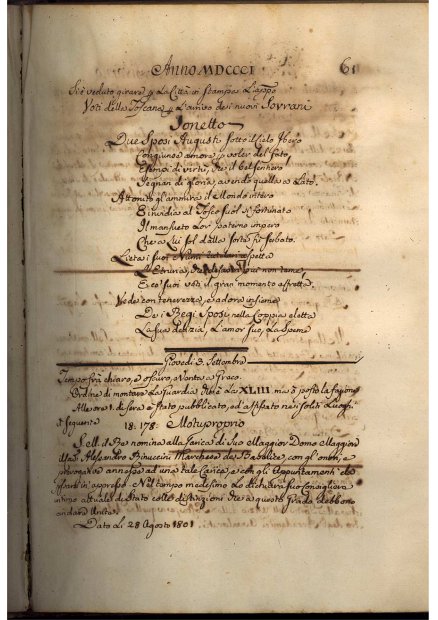 Anno MDCCCI 61
Si è veduto girare p. La Città in Stampa L'appo
Voti della Toscana p. L'arrivo dei nuovi Sovrani
Sonetto
Due Sposi Augusti sotto il Cielo Ibero
Congiunse amore, e voler del fato,
Esempi di virtù, che il bel sentiero
Segnan di gloria, avendo quella a Lato.
Attonito gl'ammira il Mondo intero
E invidia al Tosco suol sì fortunato
Il mansueto Lor paterno impero
Che a Lui sol dalla sorte fù serbato.
Lieta i suoi Numi tutelari aspetta
L'Etruria, più non teme,
E co' suoi voti il gran momento affretta.
Vede con tenerezza, e adora insieme
Dei Regi Sposi nella Coppia eletta
La sua delizia, L'amor suo, La Speme
Giovedì 3. Settembre
Tempo frà chiaro, e oscuro, Vento a Greco.
Ordine di montare La Guardia Num. La XLIII. ma è posto la fazione
Alle ore 1. di sera è stato pubblicato, ed affissato nei soliti Luoghi
il seguente 18:178: Motuproprio
S. M. il Re nomina alla Carica di Suo Maggior Domo Maggiore
il Alessandro Rinuccini Marchese de Baselice, con gl'onori, e
annesse ad una tale Carica, e con gli Appuntamenti che
appresso. Nel tempo medesimo Lo dichiara suo Consigliere
intimo attuale di Stato colle distinzioni che a questo grado debbono
andare Unite.
Dato Li 28 Agosto 1801